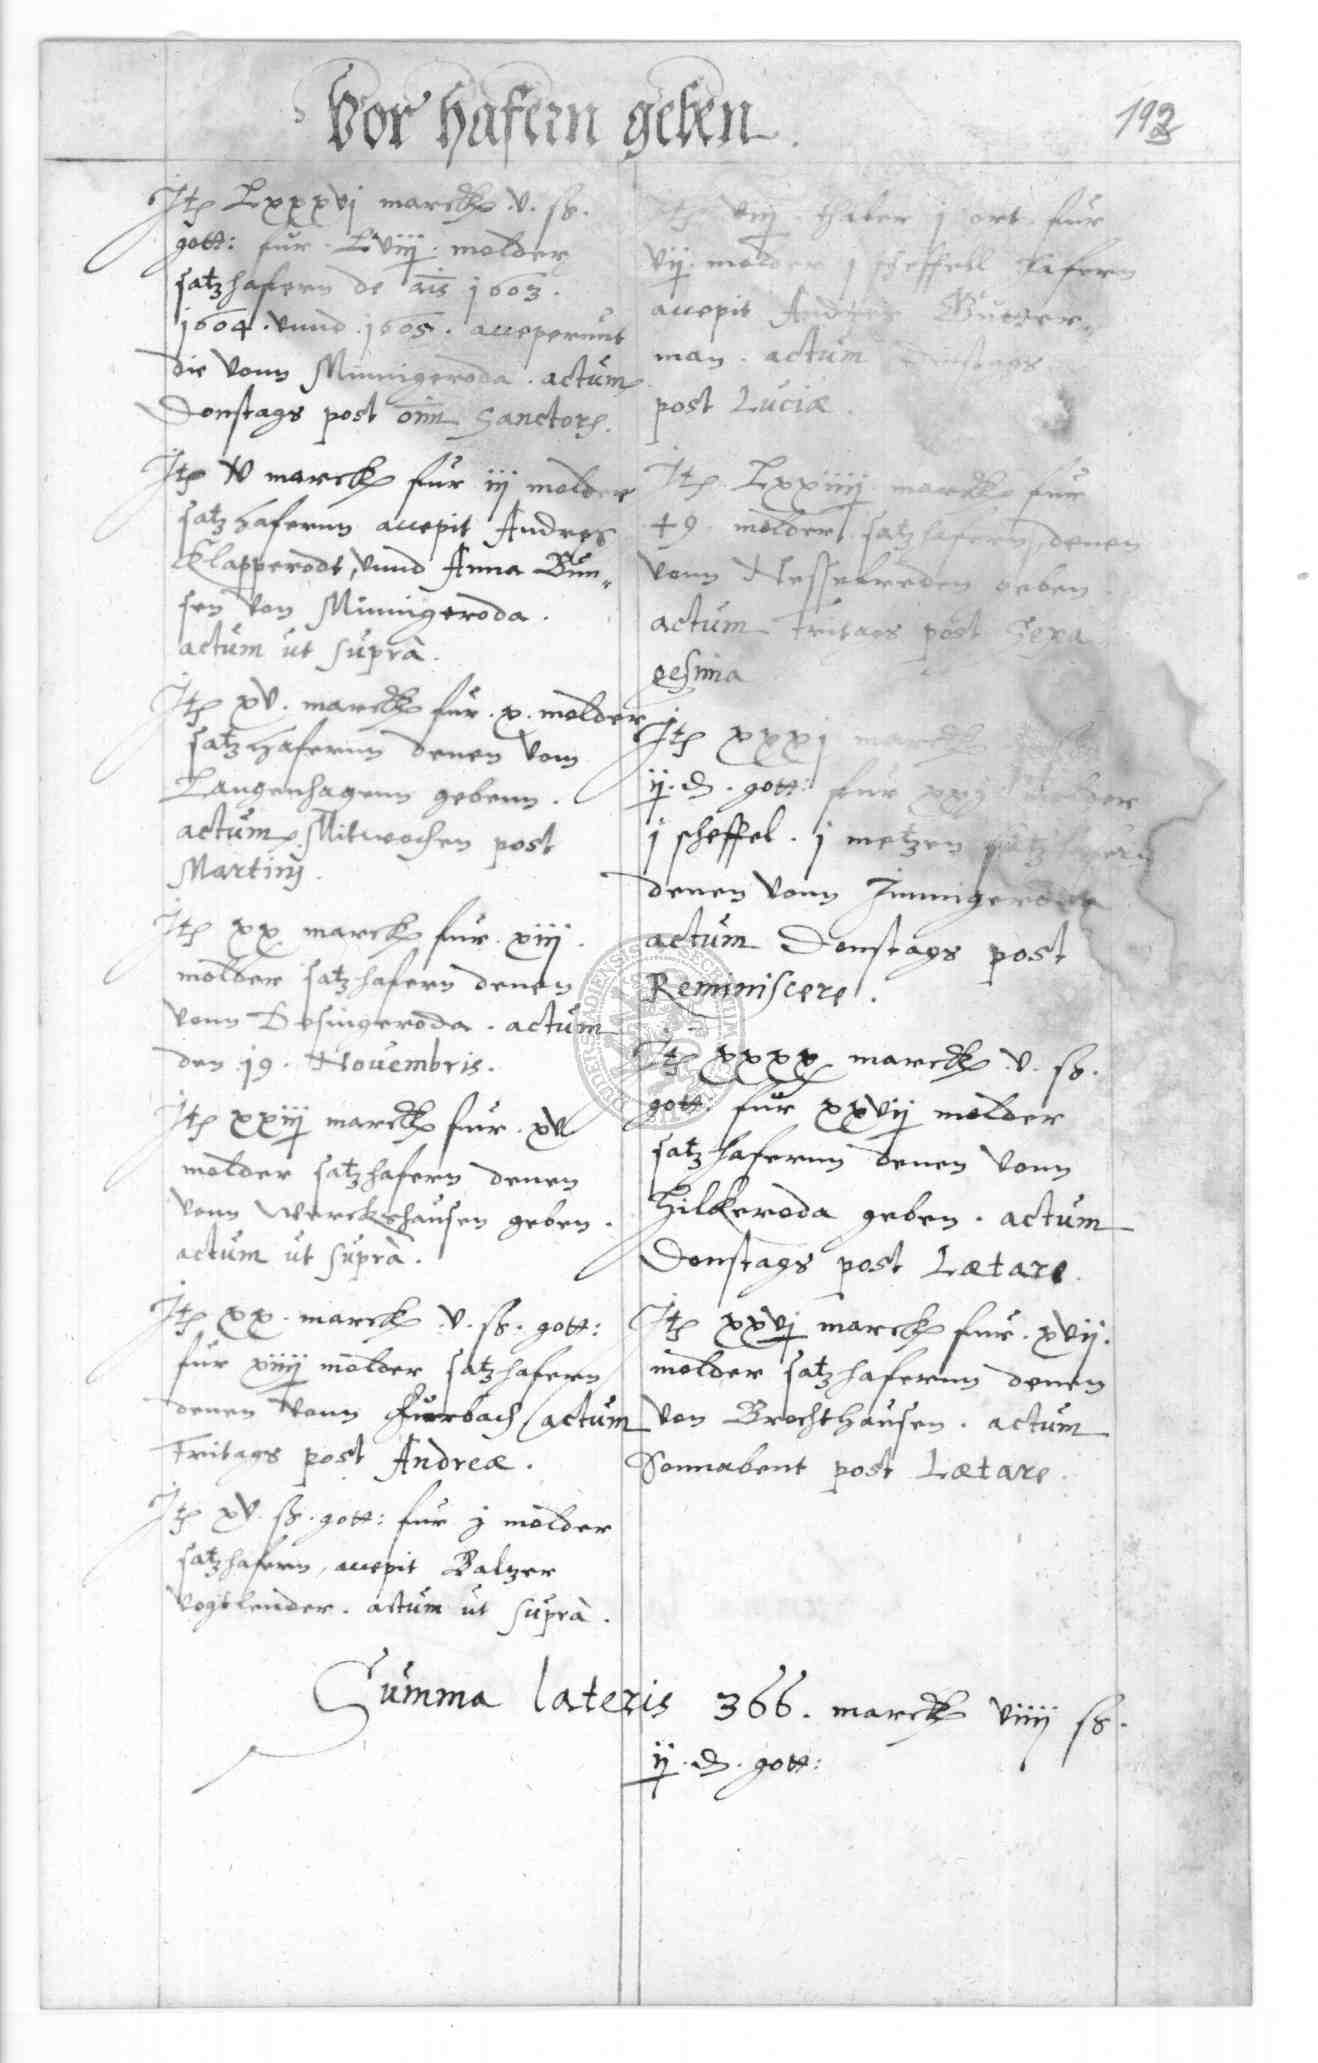 Vor hafern geben.
192
Itē Lxxxvj marck .v. ß.
gott: fur. Lviij. molder
satzhafern de aīs 1603.
1604. vnnd 1605. acceperunt
die vonn Minnigeroda. actum
Donstags post oīm Sanctorē.
Itē v marck fur iij molder
satzhafernn accepit Andres
Klapperodt, vnnd Anna Bun-
sen von Minnigeroda.
actum ut suprà.
Itē xv. marck fur. x. molder
satzhafernn denen vom
Langenhagenn gebenn.
actum Mitwochen post
Martinj.
Itē xx marck fur. xiij.
molder satzhafern denen
vonn Desingeroda. actum
den 19. Novembris.
Itē xxiij marck fur. xv
molder satzhafern denen
vonn Werckshausen geben.
actum ut suprà.
Itē xx. marck .v. ß. gott:
fur xiiij molder satzhafern
denen vonn Furbach actum
Fritags post Andreæ.
Itē xv. ß. gott: fur j molder
satzhafern, accepit Baltzer
Vogtlender. actum ut suprà.
Itē viij. thaler j ort. fur
vij. molder j scheffell hafern
accepit Andres
man. actum Dinstags
post Luciæ.
Itē Lxxiiij marck fur
49. molder satzhafern, denen
vonn Nesselreden geben.
actum Fritags post Sexa
gesima
Itē xxxj marck
ij. ₰. gott: fur xxj molder
j scheffel. j metzen satzhafern
denen vonn Immigeroda
actum Donstags post
Reminiscere.
Itē xxxx marck .v. ß.
gott. fur xxvij molder
satzhafernn denen vonn
Hilkeroda geben. actum
Donstags post Lætare.
Itē xxvj marck fur. xvij.
molder satzhafernn denen
von Brochthausen. actum
Sonnabent post Lætare.
Summa lateris 366. marck viiij ß.
ij. ₰. gott: